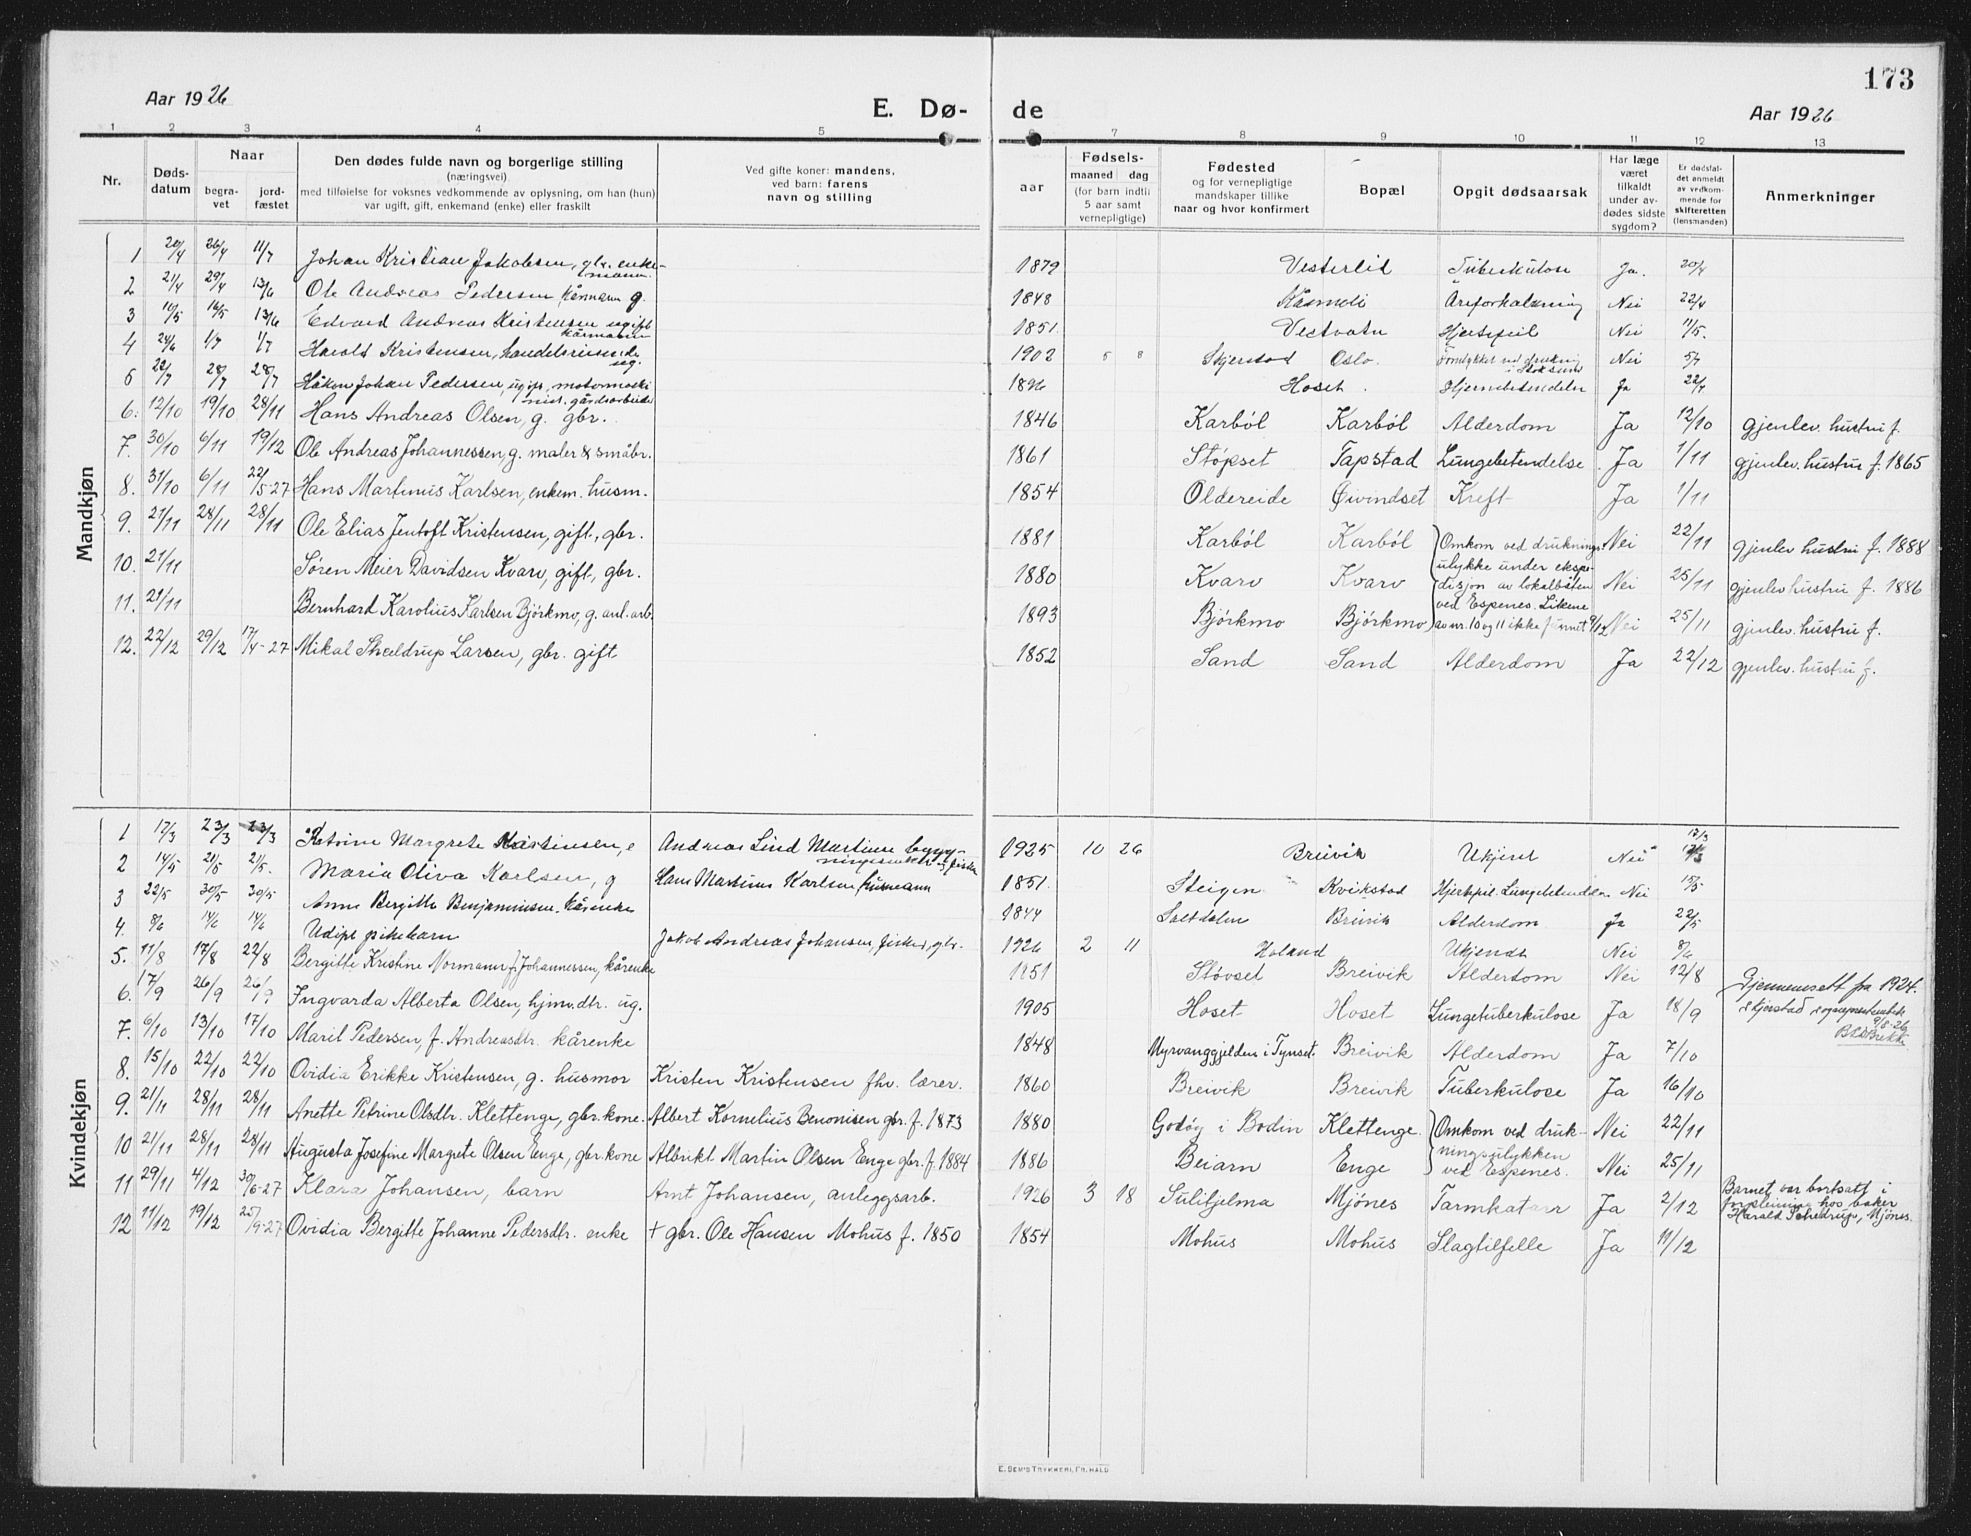 173
Aar 1926
E. Dø-
de
Aar 1926
1 2 3 4 5 6 7 8 9 10 11 12 13
Nr.
Døds-
datum
Naar
begra-
vet
jord-
fæstet
Den dødes fulde navn og borgerlige stilling
(næringsvei)
med tilføielse for voksnes vedkommende av oplysning, om han (hun)
var ugift, gift, enkemand (enke) eller fraskilt
Ved gifte koner: mandens,
ved barn: farens
navn og stilling
aar
Fødsels-
maaned dag
(for barn indtil
5 aar samt
vernepligtige)
Fødested
og for vernepligtige
mandskaper tillike
naar og hvor konfirmert
Bopæl
Opgit dødsaarsak
Har læge
været
tilkaldt
under av-
dødes sidste
sygdom?
Er dødsfal-
det anmeldt
av vedkom-
mende for
skifteretten
(lensmanden)
Anmerkninger
Mandkjøn
1 20/4 26/4 11/7 Johan Kristian Jakobsen, gbr. enke-
mann. 1879 Vesterlid Tuberkulose Ja. 20/4
2 21/4 29/4 13/6 Ole Andreas Pedersen kårmann g. 1848 Åreforkalkning Nei 22/4
3 10/5 16/5 13/6 Edvard Andreas Kristensen ugift
kårmann 1851 Vestvatn Hjertefeil Nei 11/5.
4 24/6 1/7 1/7 Harald Kristensen, handelsreisende
ug. 1902 5 8 Skjerstad Oslo. Omkommet ved drukning Nei 5/7
5 22/7 28/7 28/7 Håkon Johan Pedersen, ugift, motormaski
nist. gårdsarbeider 1896 Hoset. Hjernebetendelse Ja 22/7
6. 12/10 19/10 28/11 Hans Andreas Olsen, g. gbr. 1846 Karböl Karböl Alderdom Ja 12/10 gjenlev. hustru f.
7. 30/10 6/11 19/12 Ole Andreas Johannessen, g. maler & småbr. 1861 Støpset Tapstad Lungebetendelse. Ja 1/11 gjenlev. hustru f. 1865
8. 31/10 6/11 22/5-27 Hans Martinus Karlsen, enkem. husm. 1854 Oldereide Øivindset Kreft Ja 1/11
9. 21/11 28/11 28/11 Ole Elias Jentoft Kristensen, gift, gbr. 1881 Karböl Karböl Omkom ved druknings- Nei 22/11 gjenlev hustru f. 1888
ulykke under ekspe-
10. 21/11 Søren Meier Davidsen Kvarv, gift, gbr. 1880 Kvarv Kvarv disjon av lokalbåten Nei 25/11 gjenlev hustru f. 1886
ved Espenes. Likene
11. 21/11 Bernhard Karolius Karlsen Bjórkmo, g. anl. arb. 1893 Bjórkmo Bjórkmo av nr. 10 og 11 ikke funnet 9/12 Nei 25/11 gjenlev. hustru f.
12. 22/12 29/12 17/4-27 Mikal Skeldrup Larsen, gbr. gift 1852 Sand Sand Alderdom Ja 22/12 gjenlev. hustru f.
Kvindekjøn
1 17/3 23/3 23/3 Katrine Margrete Martinsen, Andreas Lind Martinsen bygg- 1925 10 26 Breivik Ukjent Nei 17/3
2 14/5 21/5 21/5. Maria Oliva Karlsen, g Hans Martinus Karlsen husmann 1851. Steigen Kvikstad Hjertefeil. Lungebetendelse Nei 15/5
3 22/5 30/5 30/5 Anne Bergitte Benjaminsen, kårenke 1844 Saltdalen Breivik Alderdom Ja 22/5
4. 8/6 14/6 14/6 Udøpt pikebarn Jakob Andreas Johansen, fisker, gbr. 1926 2 11 Holand Ukjendt Nei 8/6
5. 11/8 17/8 22/8 Bergitte Kristine Normann f. Johannessen, kårenke 1851 Støvset Breivik Alderdom Nei 12/8
6. 17/9 26/9 26/9 Ingvarda Alberta Olsen, hjmv. dtr. ug. 1905 Hoset Hoset Lungetuberkulose Ja 18/9
Gjennemsett fra 1924.
7. 6/10 13/10 17/10 Maril Pedersen, f. Andreasdtr. kårenke 1848 Myrvanggjelden i Tynset. Breivik Alderdom Ja 7/10
8. 15/10 22/10 22/10 Ovidia Erikke Kristensen, g. husmor Kristen Kristensen fhv. lærer. 1860 Breivik Breivik Tuberkulose Ja 16/10
9. 21/11 28/11 28/11 Anette Petrine Olsdtr. Klettenge, gbr. kone. Albert Kornelius Benonisen gbr. f. 1873 1880 Godöy i Bodin Klettenge. Omkom ved druk- Nei 22/11
ningsulykken
10 21/11 28/11 28/11 Augusta Josefine Margrete Olsen Enge, gbr. kone Albrikt Martin Olsen Enge gbr. f. 1884 1886 Beiarn Enge ved Espenes. Nei 25/11
11 29/11 4/12 30/6-27 Klara Johansen, barn Arnt Johansen, anleggsarb. 1926 3 18 Sulitjelma Mjónes Tarmkatarr Ja 2/12 Barnet var bortsatt i
forpleining hos baker
Harald Scheldrup, Mjónes.
12 11/12 19/12 25/9-27 Ovidia Bergitte Johanne Pedersdtr. enke + gbr. Ole Hansen Mohus f. 1850 1854 Mohus Mohus Slagtilfelle Ja 11/12
E. SEM'S TRYKKERI, FR.HALD